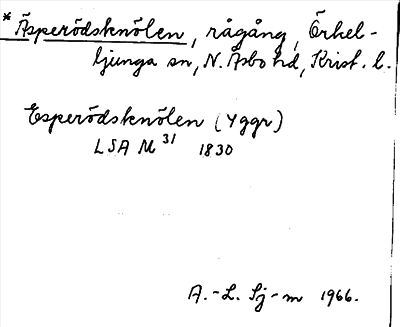 * Äsperödsknölen, rågång, Örkel-
ljunga sn, N. Åsbo hd, Krist. l.
Esperödsknölen (Yggr)
LSA M 31 1830
A.-L. Sj-m 1966.